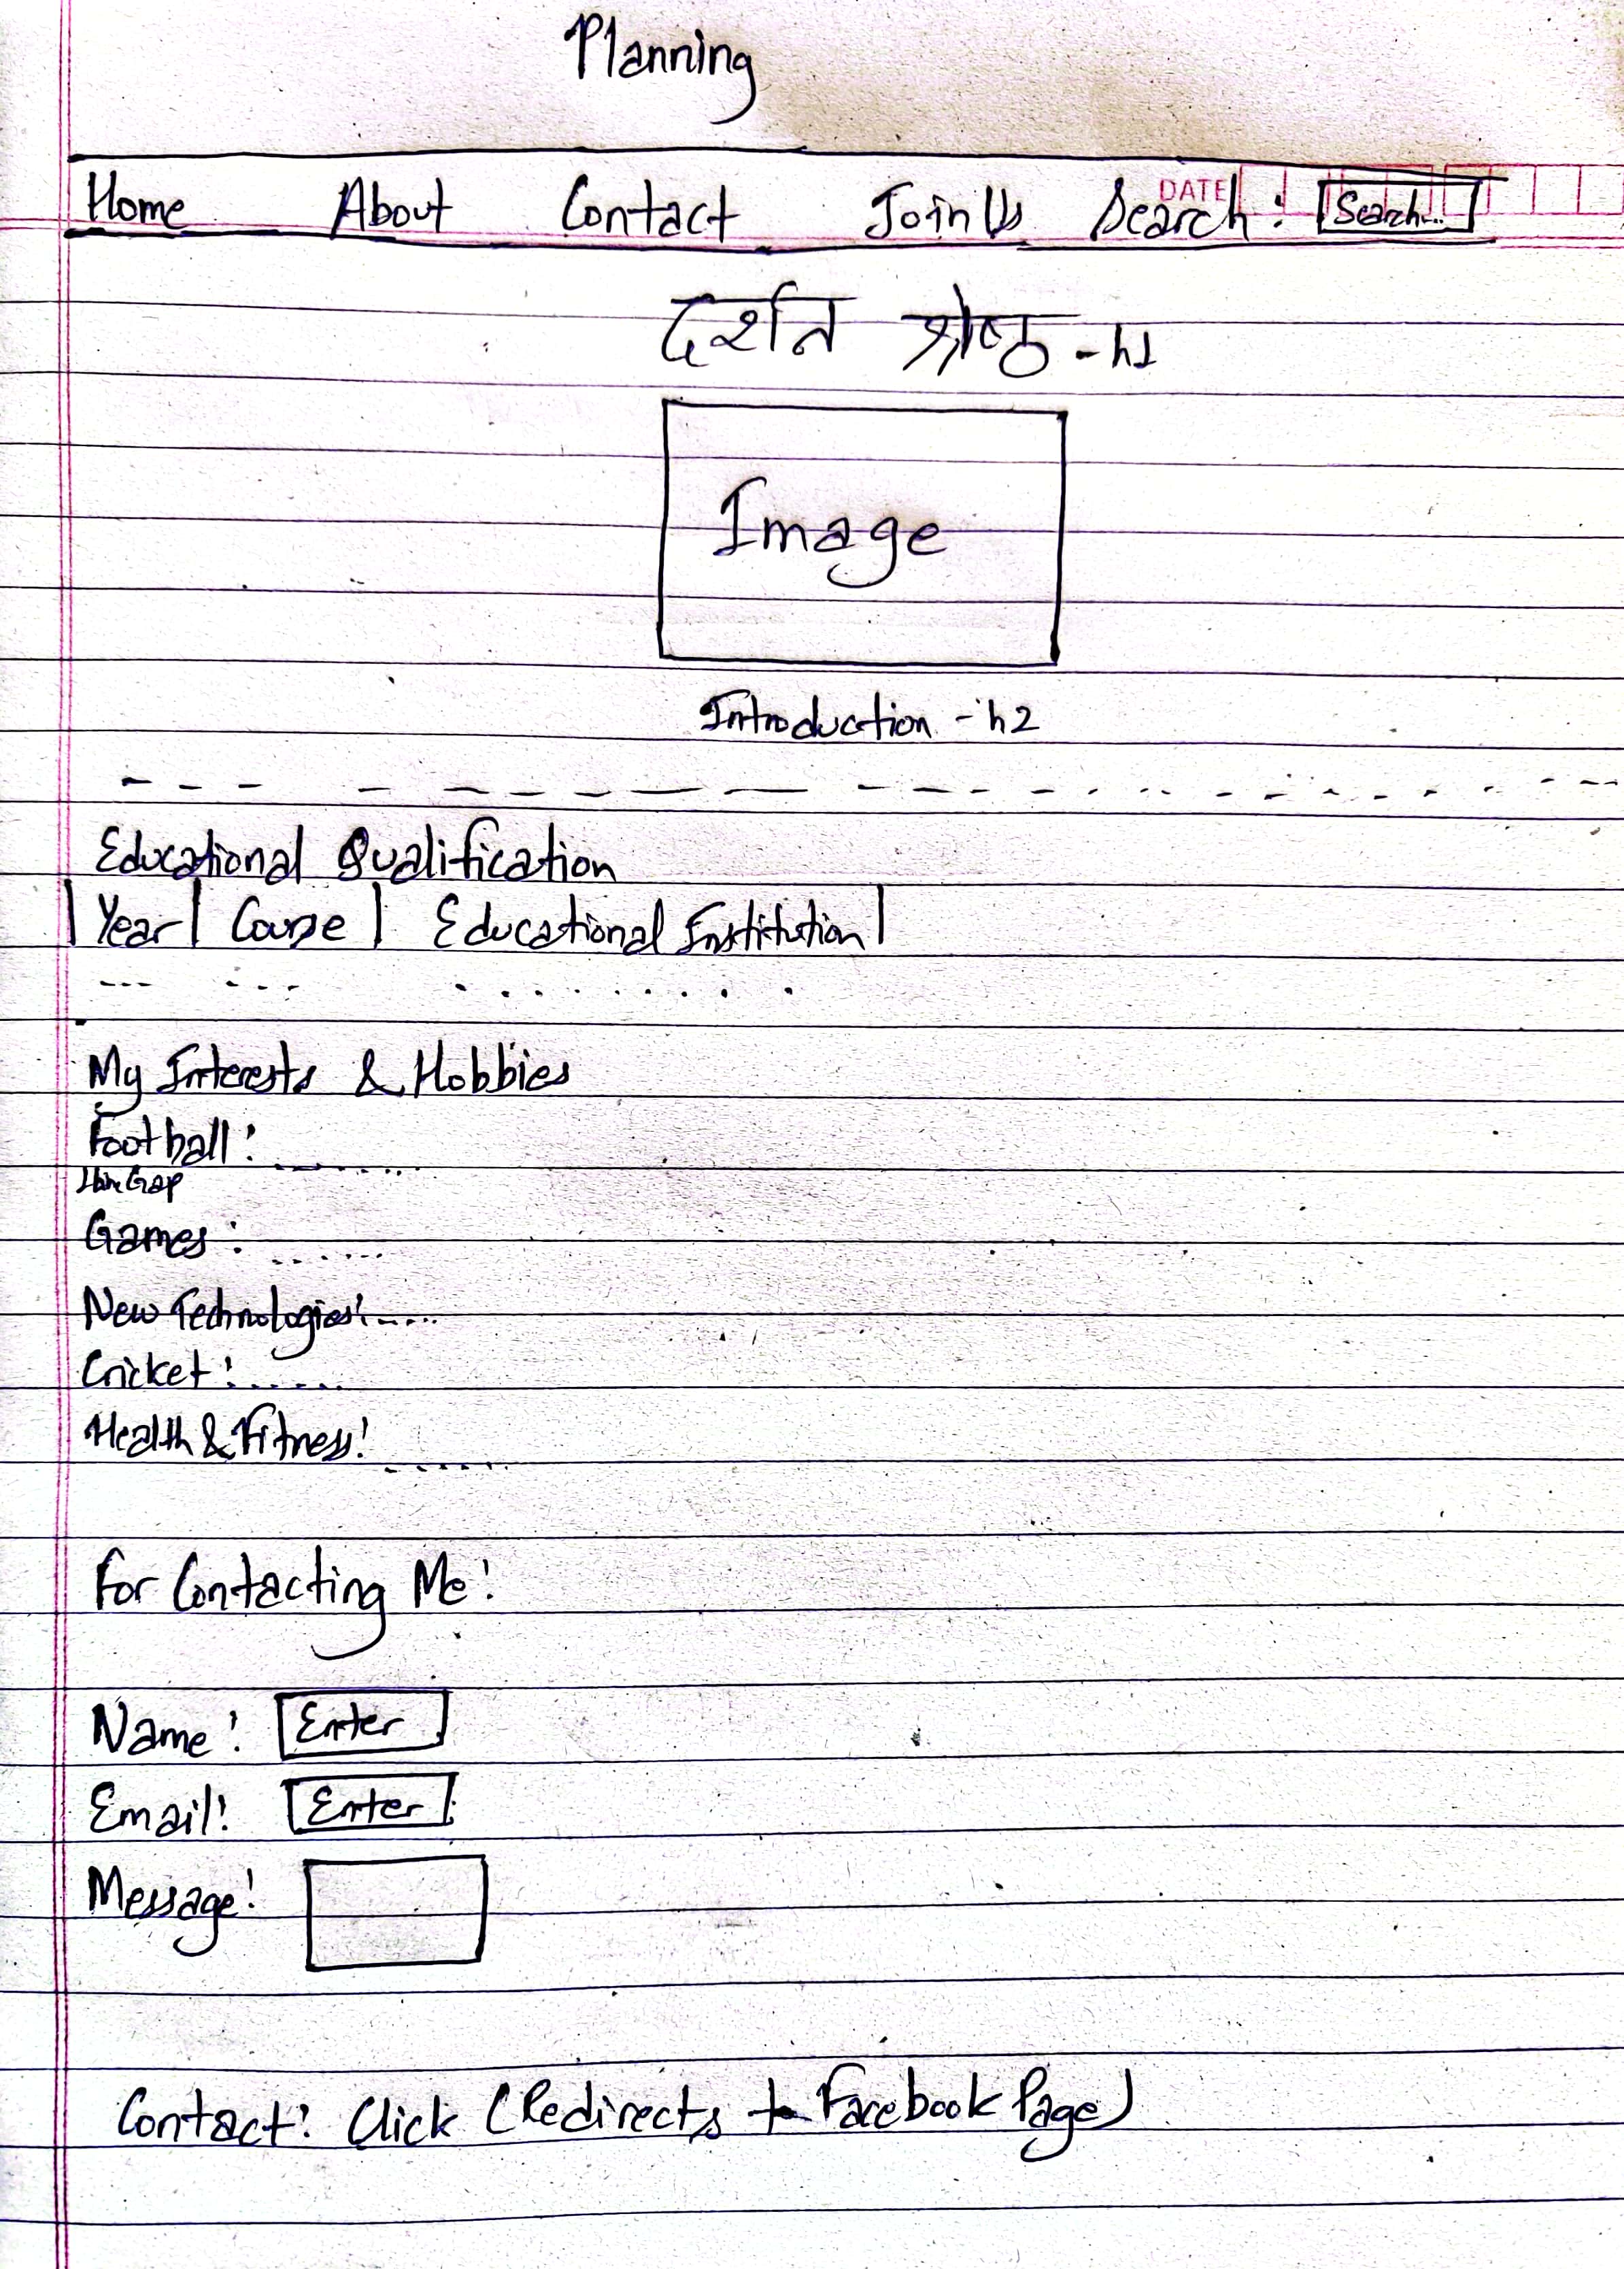 Planning
DATE
Home About Contact Join Us Search: Search...
दर्शन श्रेष्ठ - h1
Image
Introduction - h2
Educational Qualification
| Year | Course | Educational Institution |
My Interests & Hobbies
Football: .......
Gap
Games: ......
New Technologies: .....
Cricket: ......
Health & Fitness: ......
For Contacting Me:
Name: Enter
Email: Enter
Message:
Contact: Click (Redirects to Facebook Page)